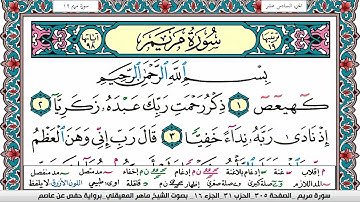 الجزء السادس عشر
سورة مريم ١٩
سُورَةُ مَرْيَمَ
بِسْمِ ٱللَّهِ ٱلرَّحْمَٰنِ ٱلرَّحِيمِ
كٓهيعٓصٓ ١ ذِكْرُ رَحْمَتِ رَبِّكَ عَبْدَهُۥ زَكَرِيَّآ ٢
إِذْ نَادَىٰ رَبَّهُۥ نِدَآءً خَفِيًّا ٣ قَالَ رَبِّ إِنِّى وَهَنَ ٱلْعَظْمُ
سورة مريم الصفحة ٣٠٥ الحزب ٣١ الجزء ١٦ بصوت الشيخ ماهر المعيقلي برواية حفص عن عاصم